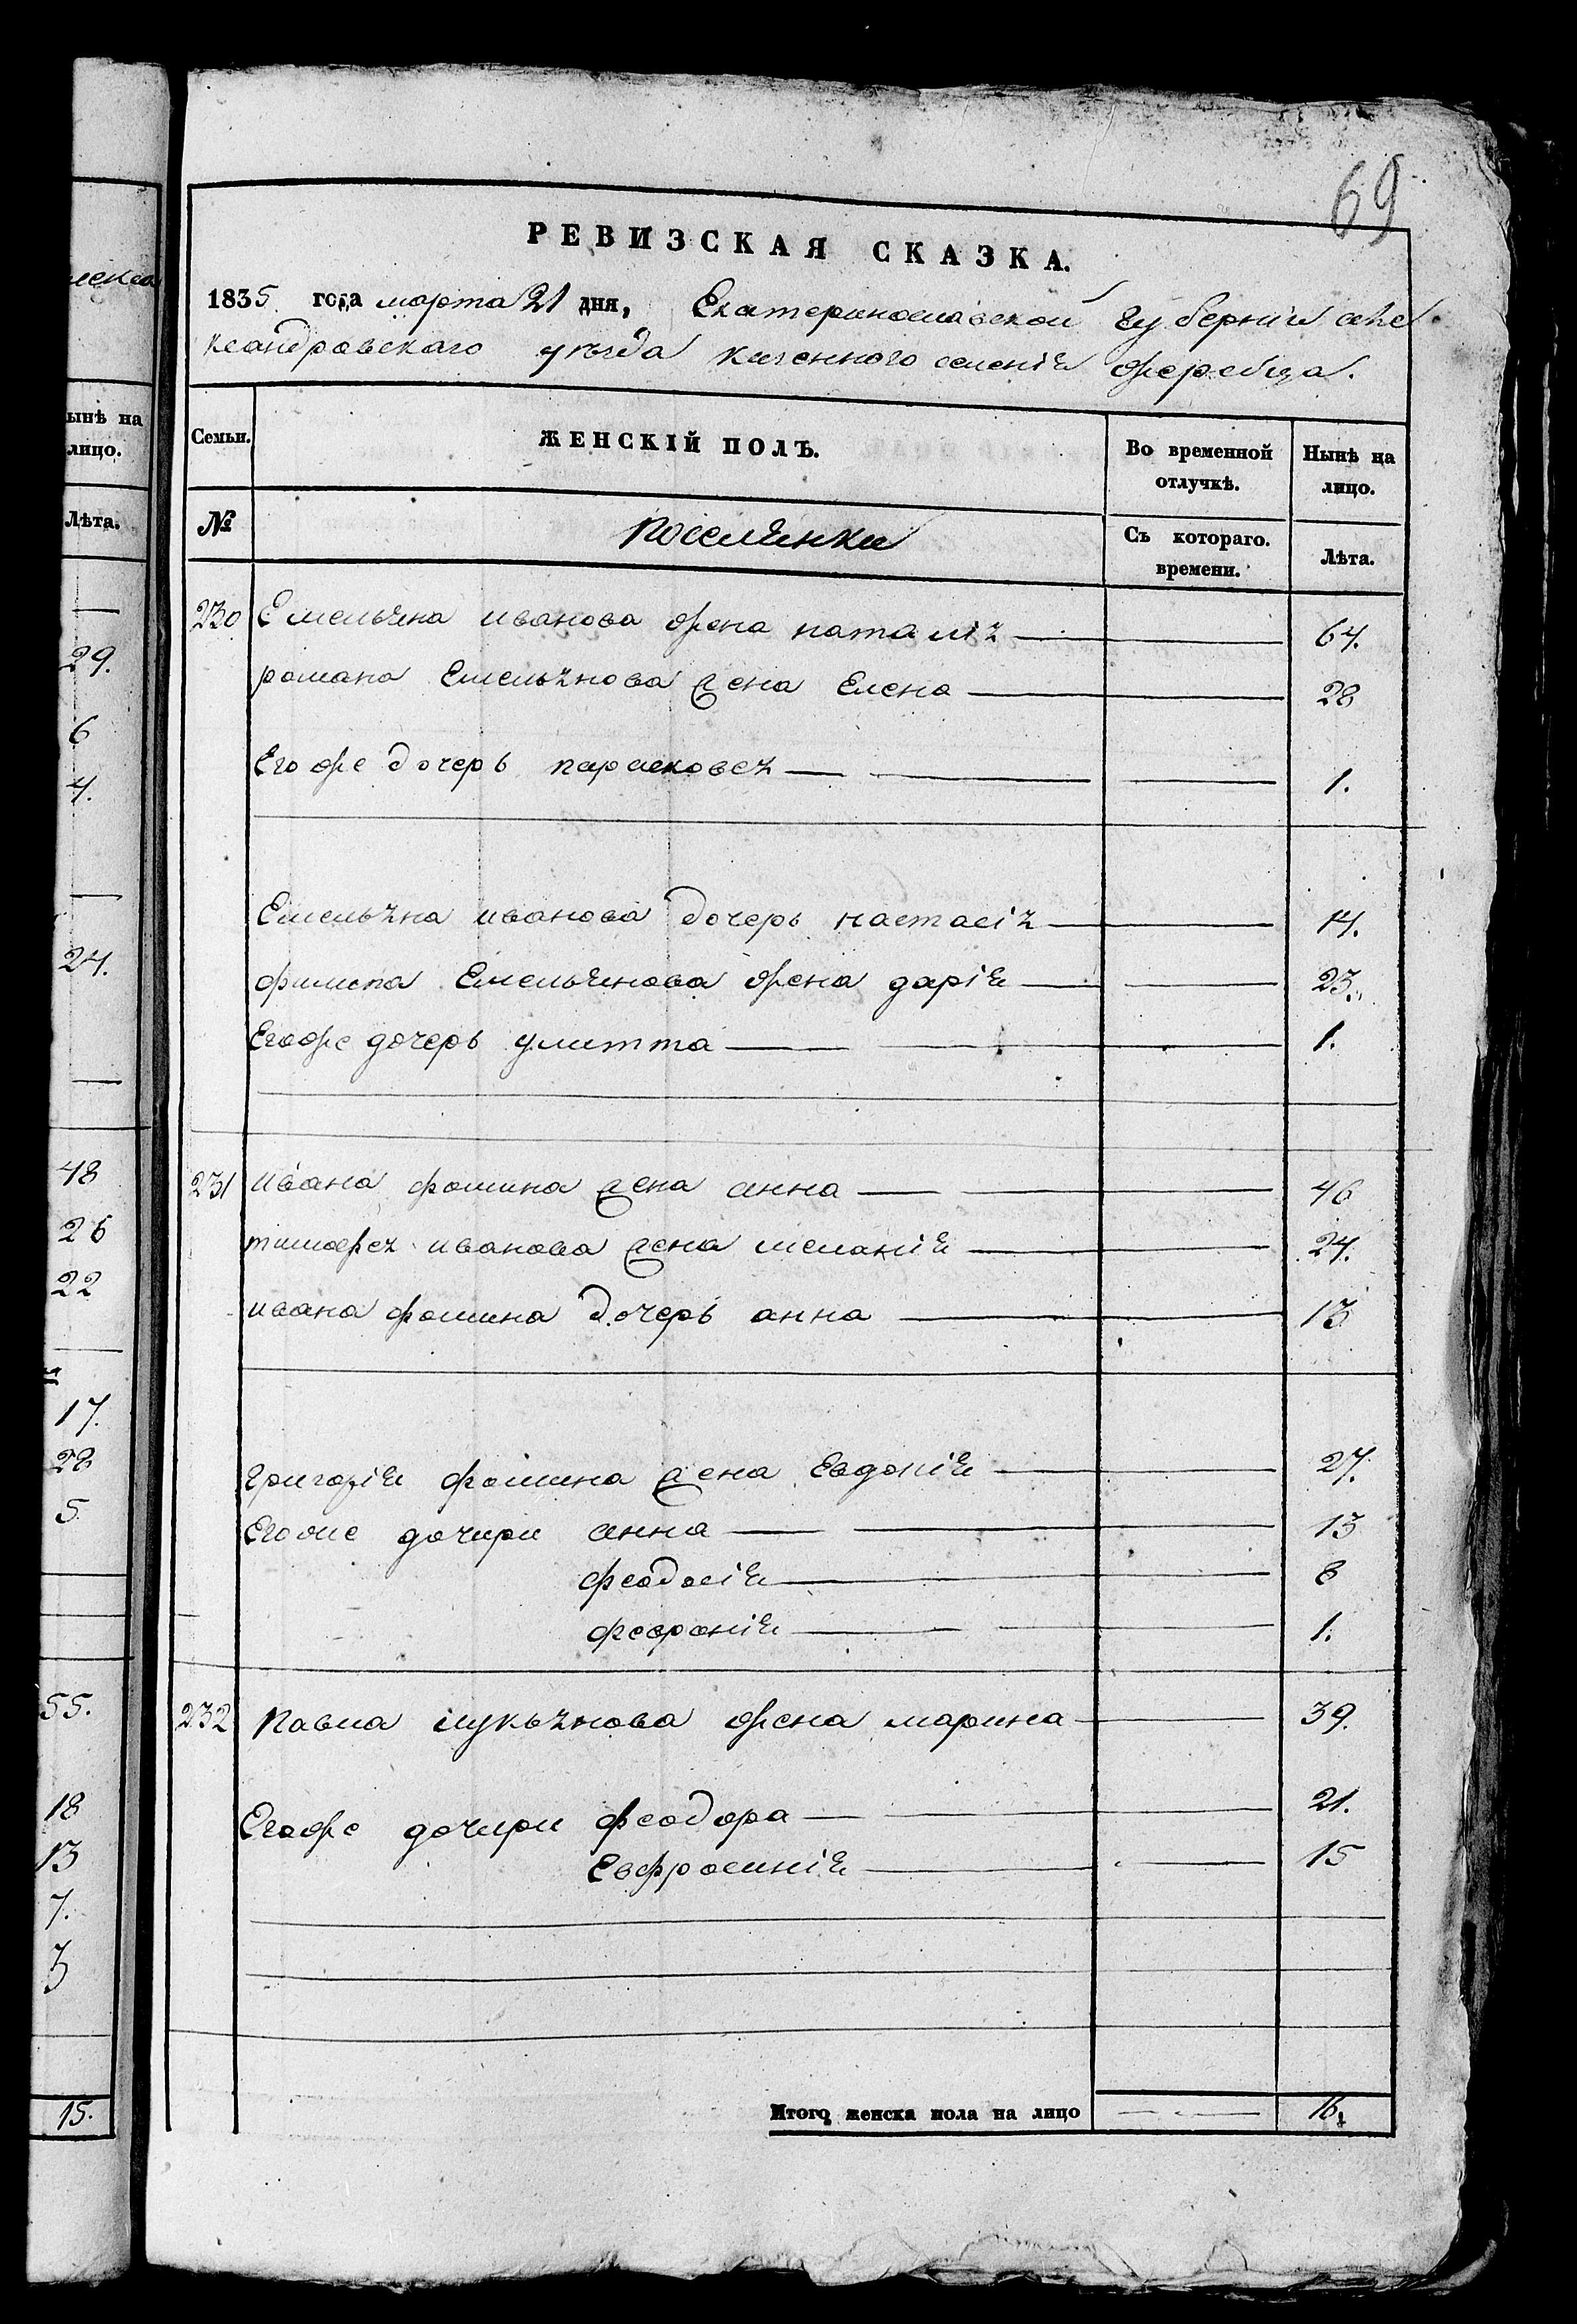 69
РЕВИЗСКАЯ СКАЗКА.
1835 года марта 21 дня, Екатеринославской губернии але
ксандровскаго уъзда казенного селенія жеребца.
Семьи. ЖЕНСКІЙ ПОЛЪ. Во временной отлучкѣ. Нынѣ на лицо.
№ Поселянки Съ котораго. времени. Лѣта.
230 Емельяна иванова жена наталія 64.
романа Емельянова жена Елена 28
Егоже дочерь парасковея 1.
Емельяна иванова дочерь настасія 14.
филипа Емельянова жена дарія 23.
Егоже дочерь улитта 1.
231 ивана фомина жена анна 46
тимофея иванова жена меланія 24.
ивана фомина дочерь анна 13
григорія фомина жена Евдокія 27.
Егоже дочери анна 13
феодосія 8
феоронія 1.
232 Павла лукьянова жена марина 39.
Егоже дочери феодора 21.
Евфросинія 15
Итого женска пола на лицо 16.
ынѣ на
лицо.
Лѣта.
29.
6
4.
24.
48
26
22
17.
28
5.
55.
18
13
7.
3
15.